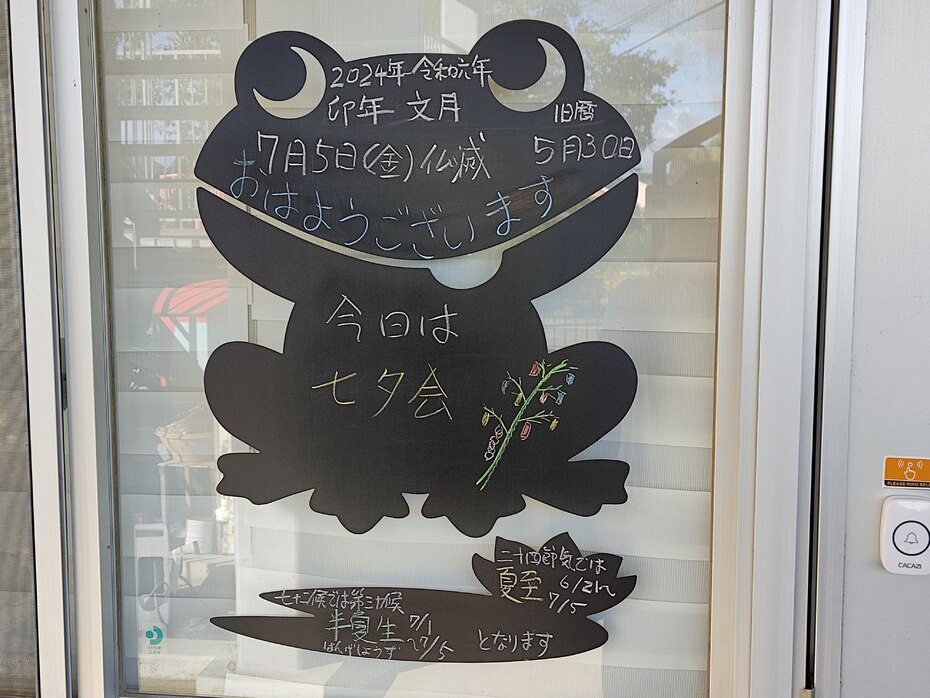 2024年 令和六年
卯年 文月
旧暦
7月5日(金)仏滅 5月30日
おはようございます
今日は
七夕会
二十四節気では
夏至 6/21〜
7/5
七十二候では第三十候
半夏生 7/1
〜7/5
はんげしょうず
となります
PLEASE RING BELL
CACAZI